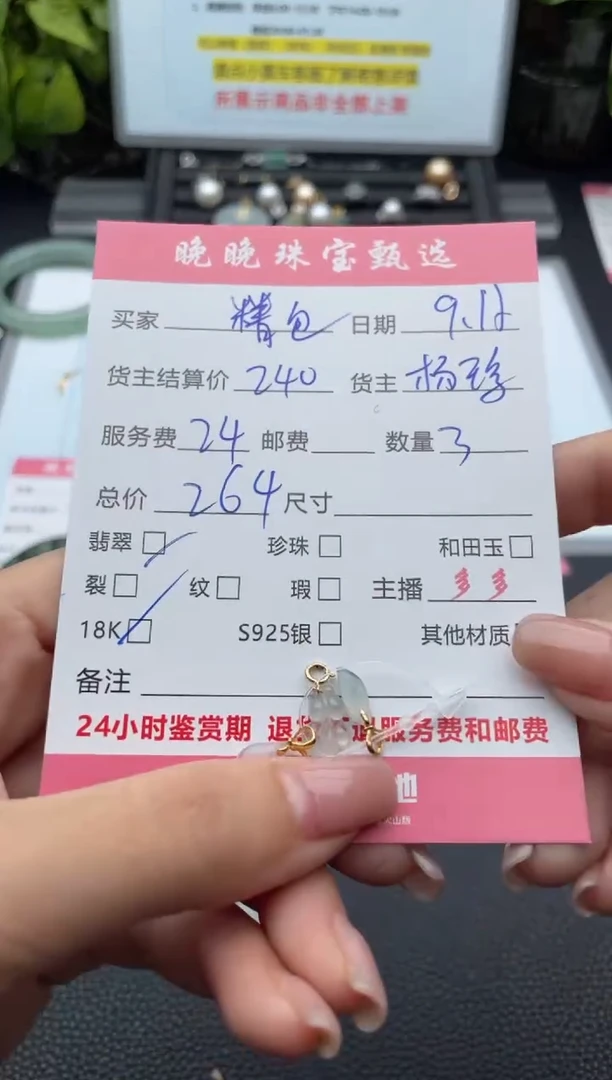 所展示商品非全部上架
晚晚珠宝甄选
买家 精包 日期 9.12
货主结算价 240 货主 杨珍
服务费 24 邮费 数量 3
总价 264 尺寸
翡翠 珍珠 和田玉
裂 纹 瑕 主播 多多
18K S925银 其他材质
备注
24小时鉴赏期 退 服务费和邮费
地